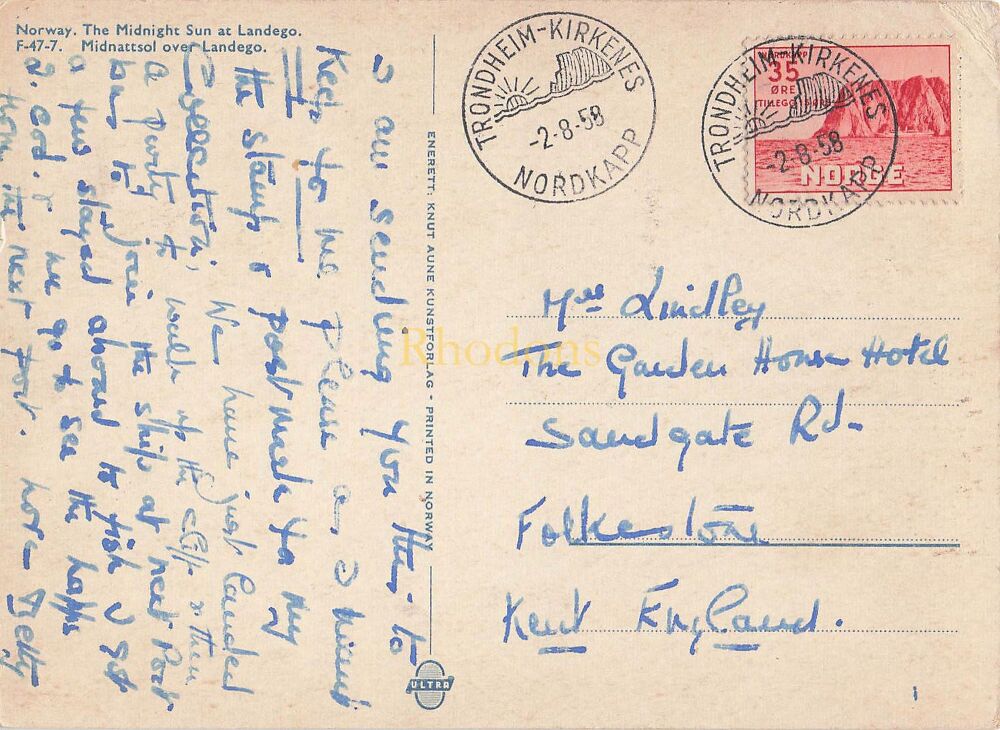 Norway. The Midnight Sun at Landego.
F-47-7. Midnattsol over Landego.
I am sending you this to
Keep for me please as I want
the stamp & postmark for my
Collection, We have just landed
a party to walk up the cliff & then
bus to join the ship at next Port
a few stayed aboard to fish I got
2 cod. & we go to see the Lapps
from the next port. love Betty
ENERETT: KNUT AUNE KUNSTFORLAG - PRINTED IN NORWAY
ULTRA
TRONDHEIM-KIRKENES
-2-8-58
NORDKAPP
TRONDHEIM-KIRKENES
-2-8-58
NORDKAPP
NORDKAPP
35
ØRE
NORGE
Mrs Lindley
The Garden House Hotel
Sandgate Rd-
Folkestone
Kent England.
Rhodons
1